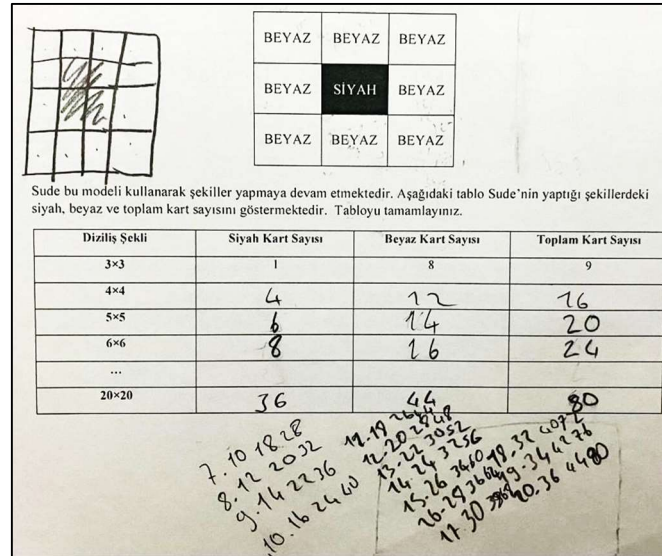 BEYAZ BEYAZ BEYAZ
BEYAZ SİYAH BEYAZ
BEYAZ BEYAZ BEYAZ
Sude bu modeli kullanarak şekiller yapmaya devam etmektedir. Aşağıdaki tablo Sude'nin yaptığı şekillerdeki
siyah, beyaz ve toplam kart sayısını göstermektedir. Tabloyu tamamlayınız.
Diziliş Şekli Siyah Kart Sayısı Beyaz Kart Sayısı Toplam Kart Sayısı
3×3 1 8 9
4×4 4 12 16
5×5 6 14 20
6×6 8 16 24
...
20×20 36 44 80
7.10 18 28
8.12 20 32
9.14 22 36
10.16 24 40
12-20 28 48
13-22 30 52
14-24 32 56
15-26 34 60
17.30 38 68
18.32 40 72
19.34 42 76
20.36 44 80